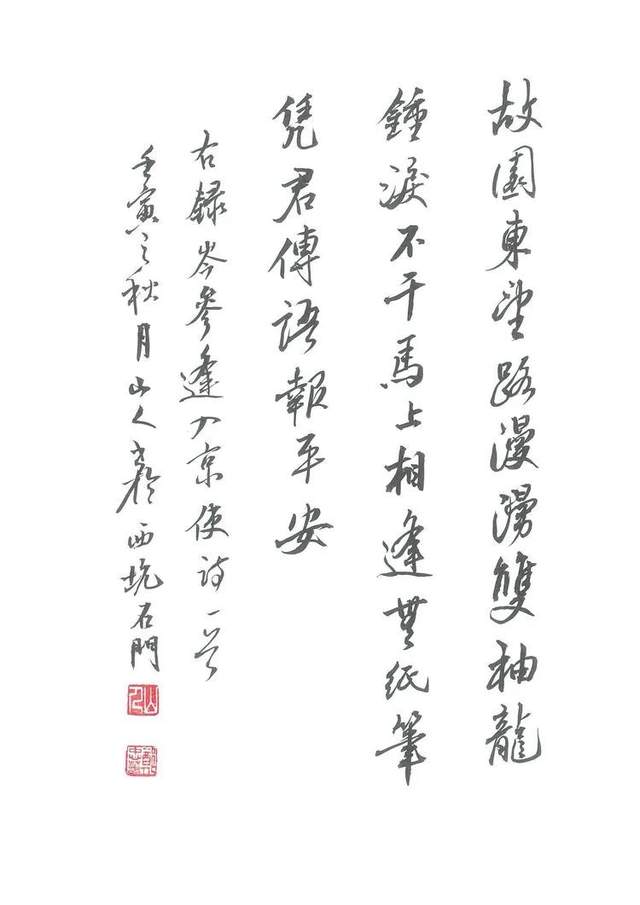 故園東望路漫漫雙袖龍
鍾淚不干馬上相逢無纸筆
凭君傳語報平安
右録岑參逢入京使詩一首
壬寅之秋月山人書於西坑石門